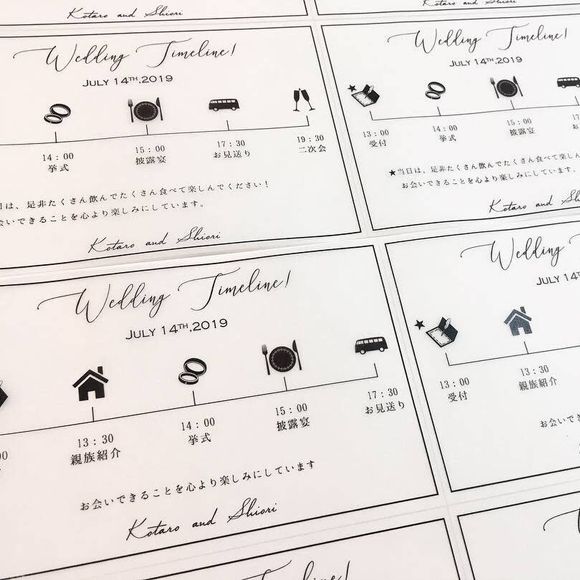 Kotaro and Shiori
Kotaro and Shiori
Wedding Timeline!
JULY 14TH,2019
14：00
挙式
15：00
披露宴
17：30
お見送り
19：30
二次会
日は、是非たくさん飲んでたくさん食べて楽しんでください！
会いできることを心より楽しみにしています。
Kotaro and Shiori
Wedding Timeline!
JULY 14TH,2019
★
13：00
受付
14：00
挙式
15：00
披露宴
★当日は、是非たくさん飲んでたくさん食べて楽し
お会いできることを心より楽しみにしています
Kotaro and Sh
Wedding Timeline!
JULY 14TH,2019
00
13：30
親族紹介
14：00
挙式
15：00
披露宴
17：30
お見送り
お会いできることを心より楽しみにしています
Kotaro and Shiori
Wedding T
JULY 14T
★
13：00
受付
13：30
親族紹介
お会いできること
Kota
Wedding Timeline!
W